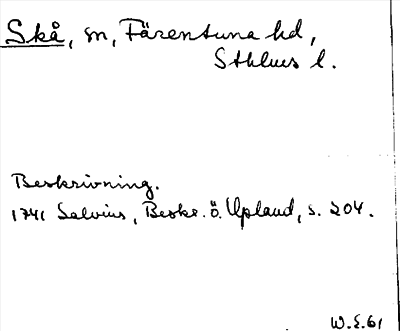 Skå, sn, Färentuna hd,
Sthlms l.
Beskrivning.
1741 Salvius, Beskr. ö. Upland, s. 204.
W.E.61